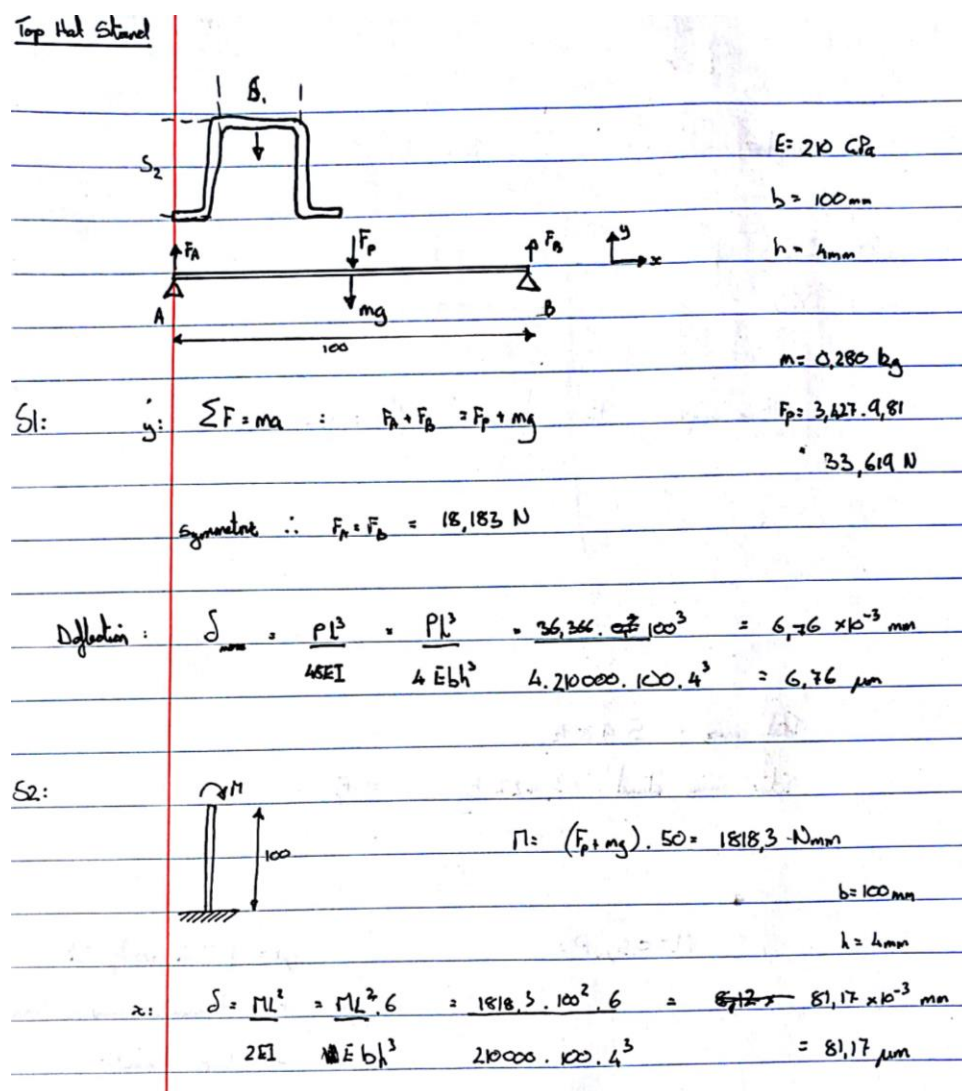 Top Hat Stand
S₁
S₂
E= 210 GPa
b = 100mm
h = 4mm
F_A F_P F_B y x
mg
A B
100
m= 0,280 kg
S1: y: ΣF = ma : F_A + F_B = F_P + mg F_P= 3,427.9,81
= 33,619 N
Symmetric ∴ F_A = F_B = 18,183 N
Deflection : δ_max = PL³ / 48EI = PL³ / 4 Ebh³ = 36,366 . 100³ / 4.210000.100.4³ = 6,76 ×10⁻³ mm
= 6,76 μm
S2: M
100 M= (F_P + mg) . 50 = 1818,3 Nmm
b=100mm
h = 4mm
x: δ = ML² / 2EI = ML².6 / Ebh³ = 1818,3 . 100² . 6 / 210000 . 100 . 4³ = 81,17 ×10⁻³ mm
= 81,17 μm